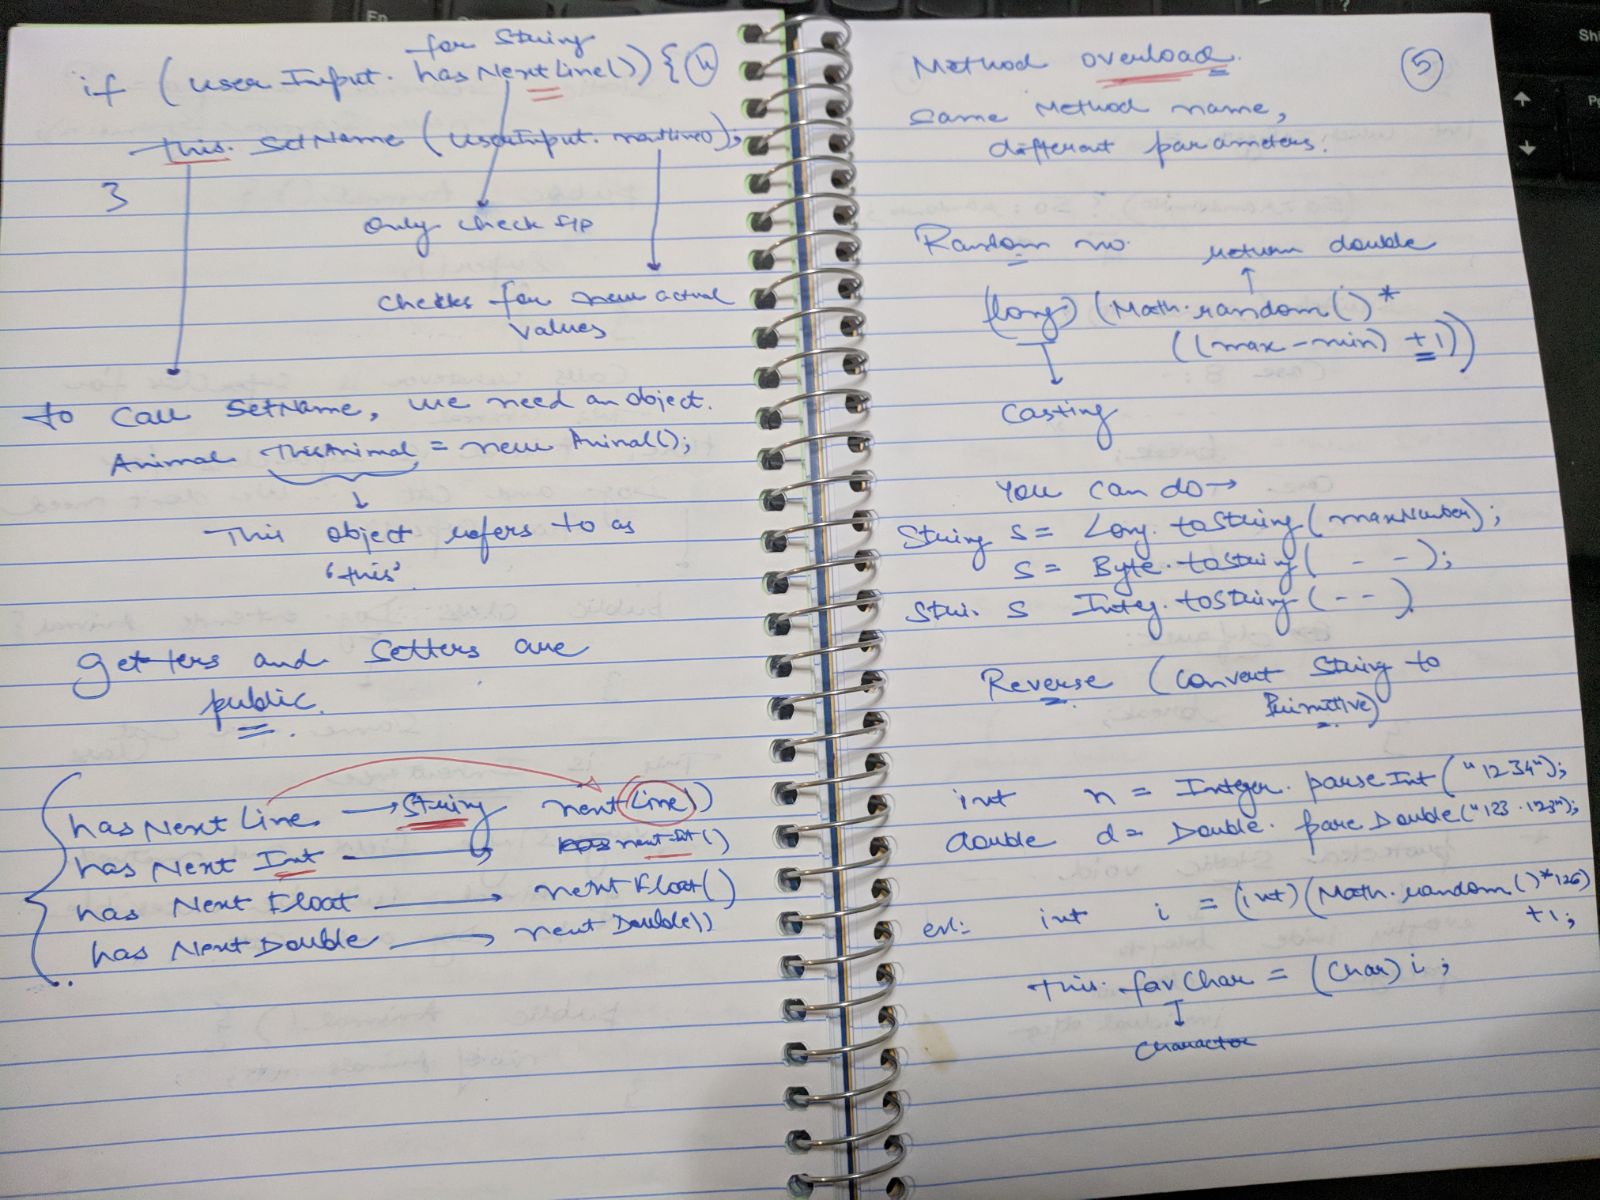 for String
if (userInput.hasNextLine()) { 4
this.setName(userInput.nextLine());
}
only check I/P
checks for new actual
values
to call setName, we need an object.
Animal thisAnimal = new Animal();
This object refers to as
'this'.
getters and setters are
public.
hasNextLine → String nextLine()
has Next Int → nextInt()
has Next Float → nextFloat()
has Next Double → nextDouble()
Method overload. 5
same Method name,
different parameters.
Random no. return double
(long) (Math.random() *
((max - min) + 1))
Casting
You can do →
String s = Long.toString(maxNumber);
s = Byte.toString( - - );
Stri. s Integ.toString( - - )
Reverse (convert String to
Primitive)
int n = Integer.parseInt("1234");
double d = Double.parseDouble("123.123");
int i = (int)(Math.random()*126)
+1;
this.favChar = (char) i;
character